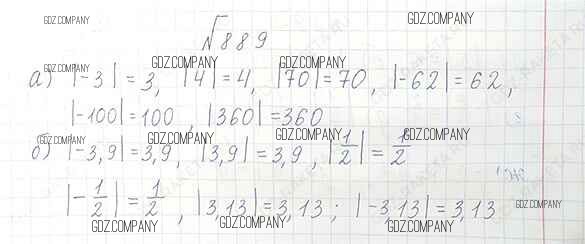 GDZ.COMPANY
√889
GDZ.COMPANY GDZ.COMPANY GDZ.COMPANY
а) |-3| = 3, |4| = 4, |70| = 70, |-62| = 62,
|-100| = 100, |360| = 360
GDZ.COMPANY GDZ.COMPANY GDZ.COMPANY GDZ.COMPANY
б) |-3,9| = 3,9, |3,9| = 3,9, |1/2| = 1/2
|-1/2| = 1/2, |3,13| = 3,13; |-3,13| = 3,13
GDZ.COMPANY GDZ.COMPANY GDZ.COMPANY GDZ.COMPANY